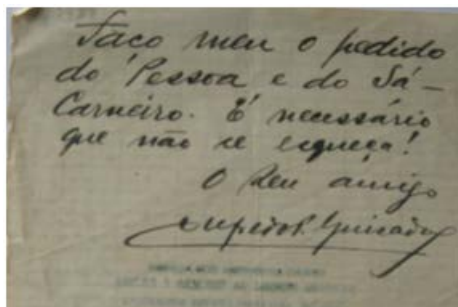 Faço meu o pedido
do Pessoa e do Sá-
Carneiro. É necessário
que não se esqueça!
O seu amigo
Alfredo P. Guisado